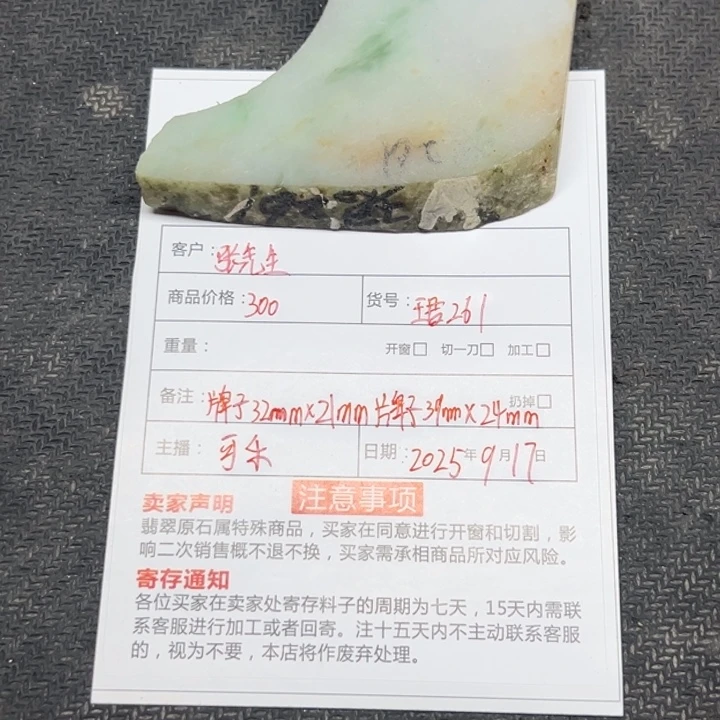 客户：张先生
商品价格：300 货号：珺261
重量： 开窗□ 切一刀□ 加工□
备注：牌子32mm×21mm 牌子39mm×24mm 扔掉□
主播： 日期：2025年9月17日
注意事项
卖家声明
翡翠原石属特殊商品，买家在同意进行开窗和切割，影
响二次销售概不退不换，买家需承相商品所对应风险。
寄存通知
各位买家在卖家处寄存料子的周期为七天，15天内需联
系客服进行加工或者回寄。注十五天内不主动联系客服
的，视为不要，本店将作废弃处理。